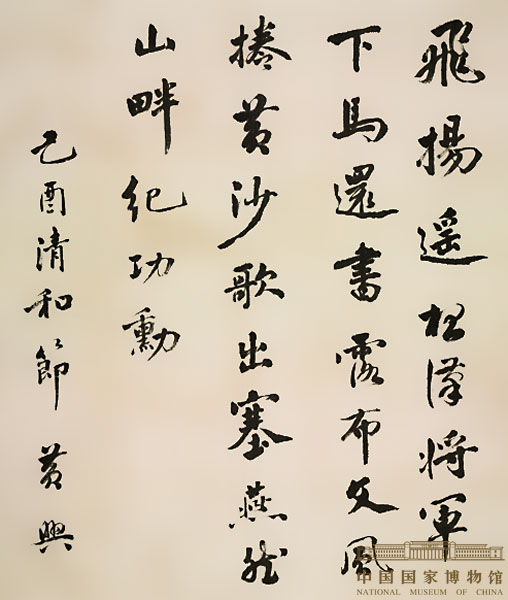 飛揚遥松漢將軍
下馬還書露布文風
捲黄沙歌出塞燕然
山畔紀功勳
乙酉清和節 黄興
中国国家博物馆
NATIONAL MUSEUM OF CHINA